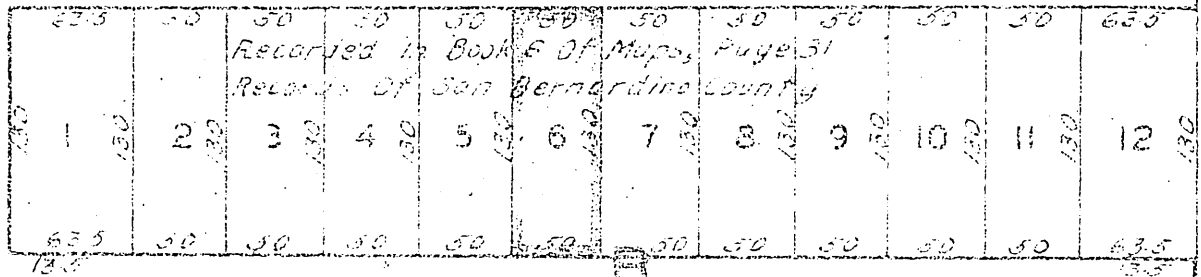 63.5 50 50 50 50 50 50 50 50 50 50 63.5
Recorded In Book 6 Of Maps, Page 31
Records Of San Bernardino County
130 1 130 2 130 3 130 4 130 5 130 6 130 7 130 8 130 9 130 10 130 11 130 12 130
63.5 50 50 50 50 50 50 50 50 50 50 63.5
13.5 13.5